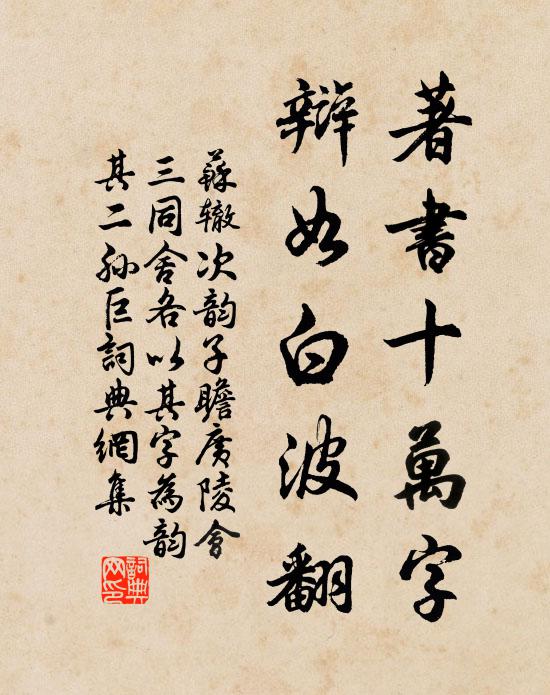 著書十萬字
辯如白波翻
蘇轍次韵子瞻廣陵會
三同舍各以其字為韵
其二孙巨詞典網集
詞典網印